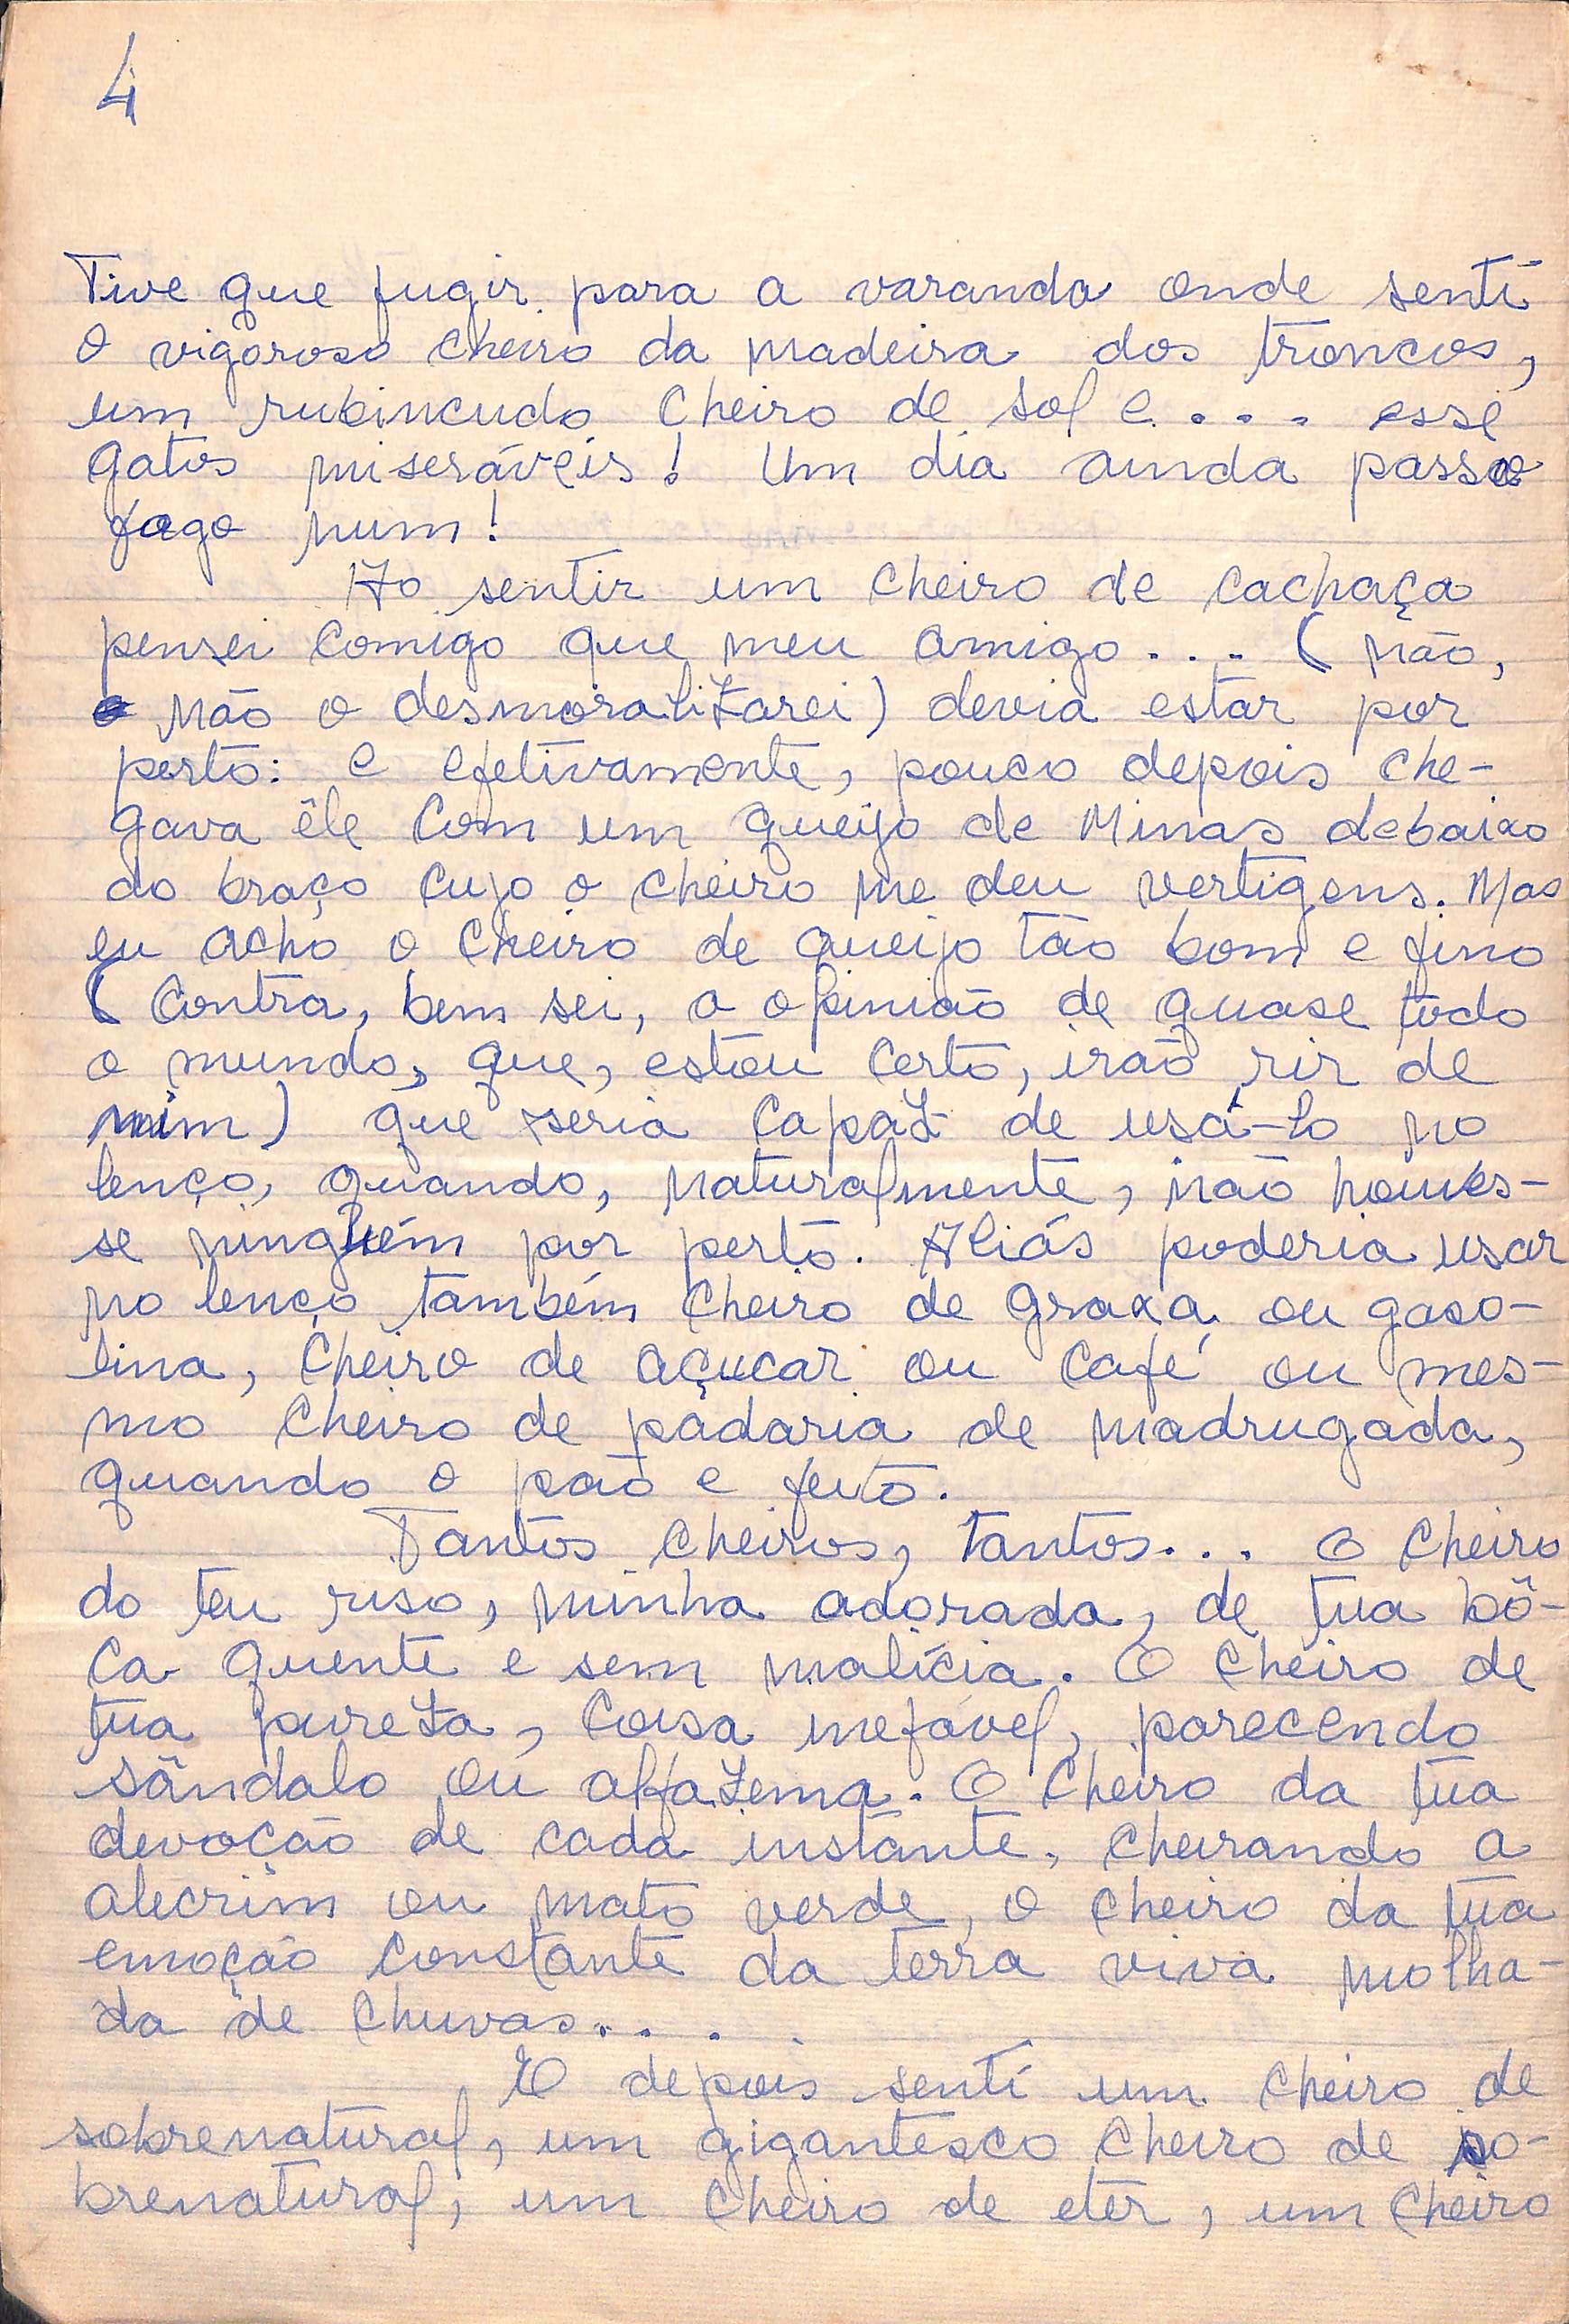 4
Tive que fugir para a varanda onde senti
o vigoroso cheiro da madeira dos troncos,
um rubincudo cheiro de sol e.... esse
gatos miseráveis! Um dia ainda passo
fogo num!
Ao sentir um cheiro de cachaça
pensei comigo que meu amigo... (não,
não o desmoralizarei) devia estar por
perto: e efetivamente, pouco depois che-
gava êle com um queijo de Minas debaixo
do braço cujo o cheiro me deu vertigens. Mas
eu acho o cheiro de queijo tão bom e fino
(contra, bem sei, a opinião de quase todo
o mundo, que, estou certo, irão rir de
mim) que seria capaz de usá-lo no
lenço, quando, naturalmente, não houves-
se ninguém por perto. Aliás poderia usar
no lenço também cheiro de graxa ou gaso-
lina, cheiro de açucar ou café ou mes-
mo cheiro de padaria de madrugada,
quando o pão e feito.
Tantos cheiros, tantos... O cheiro
do teu riso, minha adorada, de tua bô-
ca quente e sem malícia. O cheiro de
tua pureza, coisa inefável, parecendo
sândalo ou alfazema. O cheiro da tua
devoção de cada instante, cheirando a
alecrim ou mato verde, o cheiro da tua
emoção constante da terra viva molha-
da de chuvas...
E depois sentí um cheiro de
sobrenatural, um gigantesco cheiro de so-
brenatural, um cheiro de eter, um cheiro